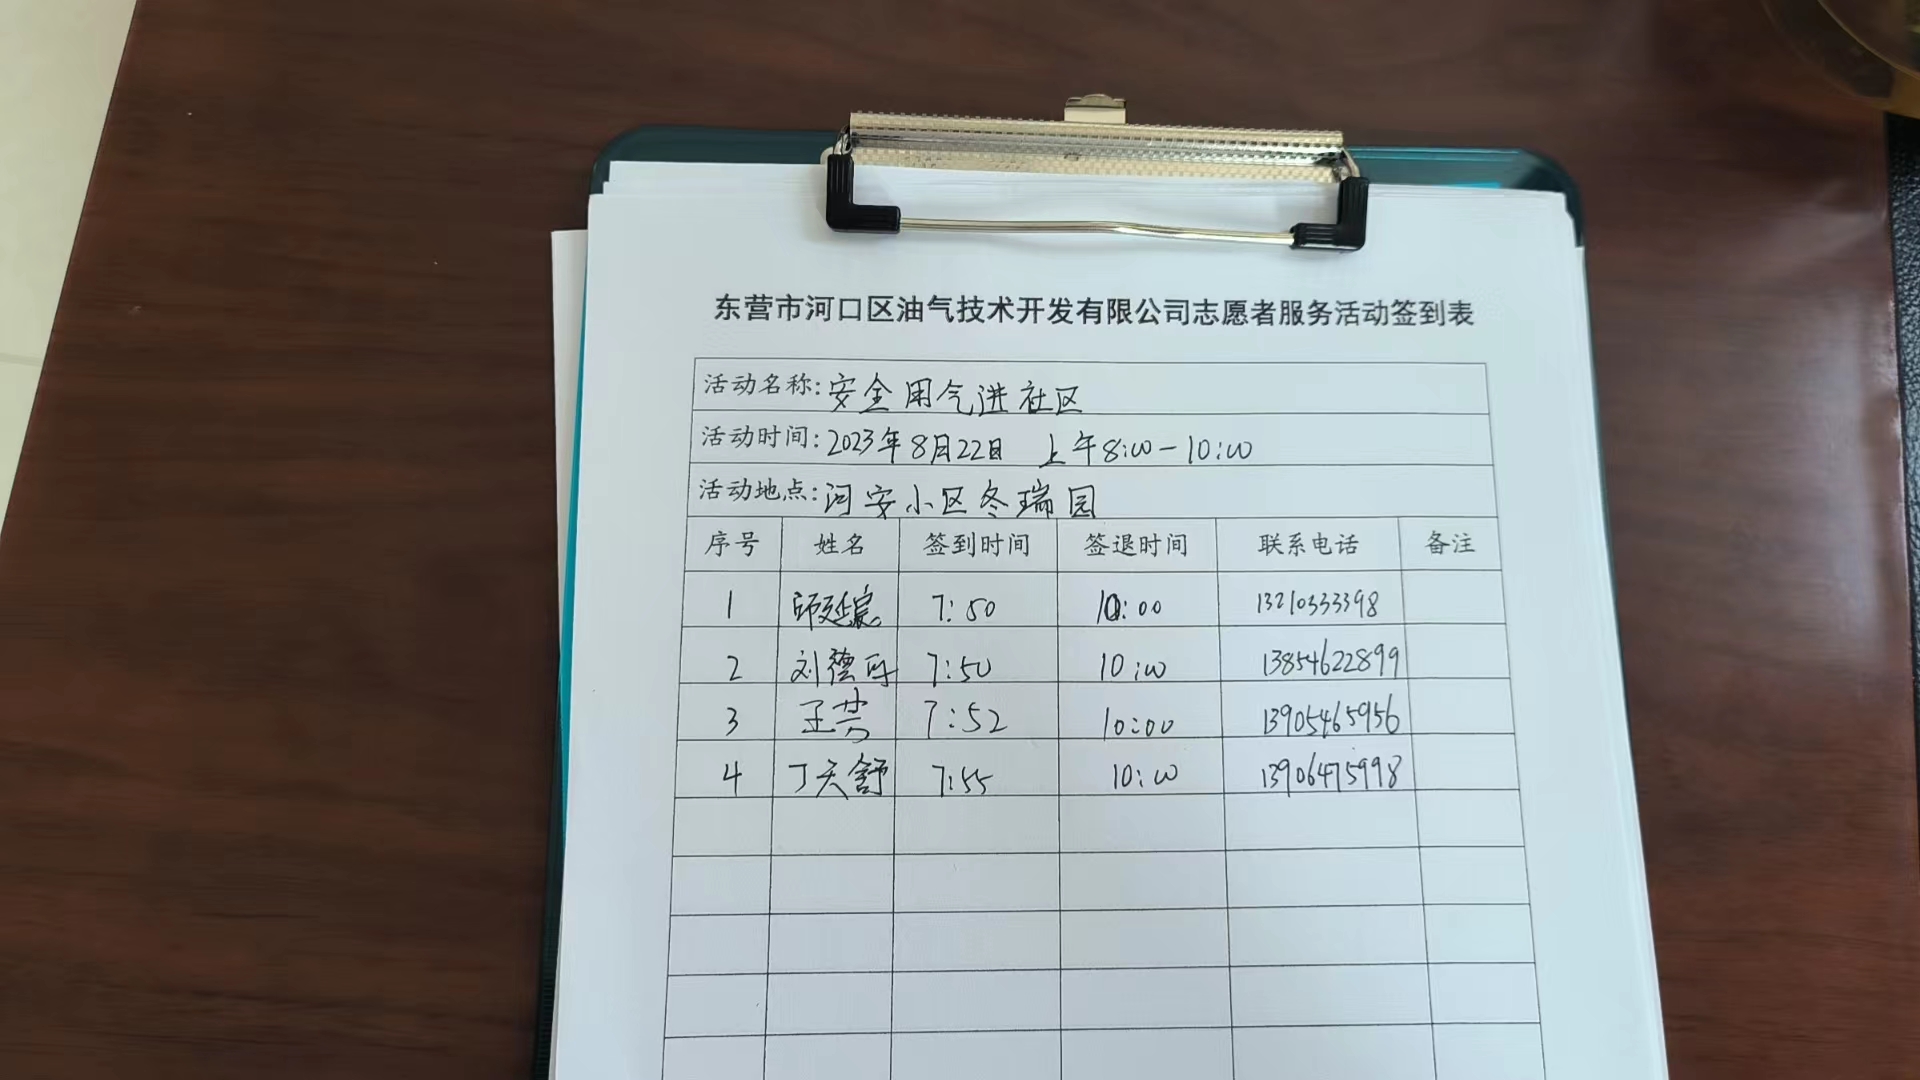 东营市河口区油气技术开发有限公司志愿者服务活动签到表
活动名称:安全用气进社区
活动时间:2023年8月22日 上午8:00-10:00
活动地点:河安小区冬瑞园
序号 姓名 签到时间 签退时间 联系电话 备注
1 7:50 10:00 13210333398
2 刘德 7:50 10:00 13854622899
3 王芳 7:52 10:00 13905465956
4 丁天舒 7:55 10:00 13906475998